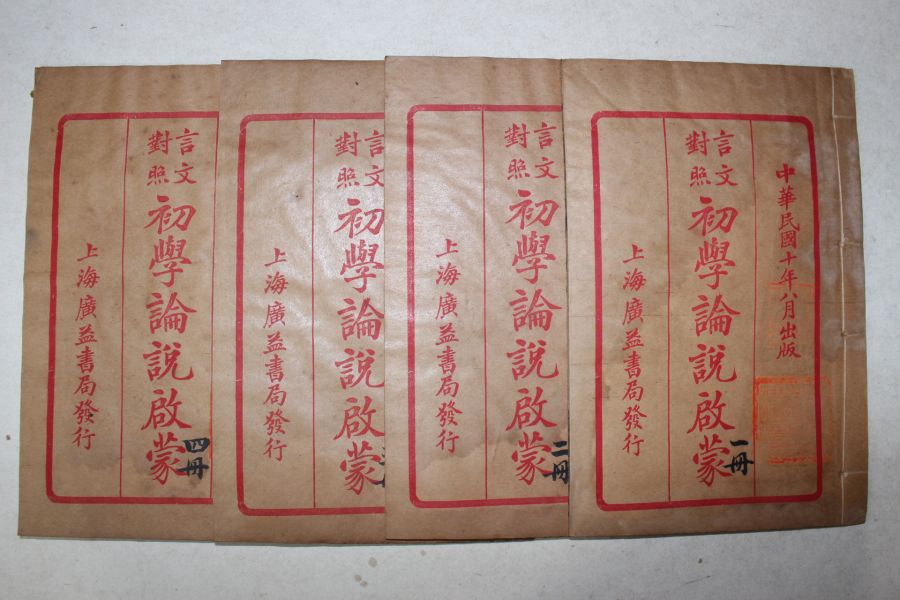 中華民國十年八月出版
言文
對照
初學論說啟蒙
一冊
上海廣益書局發行
言文
對照
初學論說啟蒙
二冊
上海廣益書局發行
言
文
對照
初學論說啟蒙
上海廣益書局發行
言文
對照
初學論說啟蒙
四冊
上海廣益書局發行